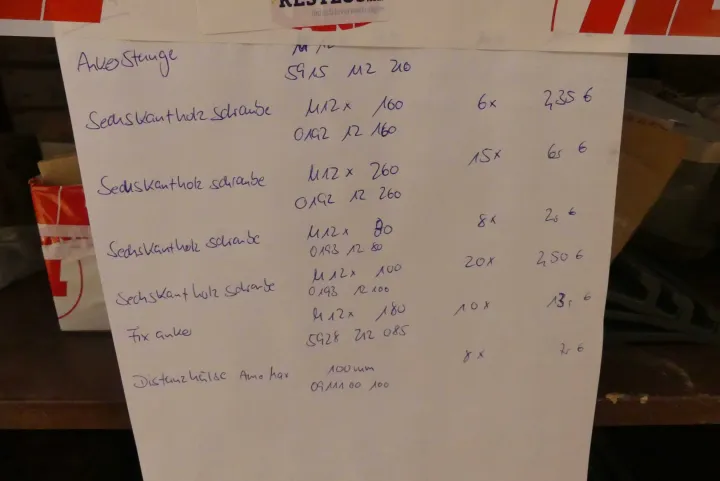 RESTLOS
Ankerstange
5915 112 210
Sechskantholzschraube M12x 160 6x 2,35 €
0192 12 160
Sechskantholzschraube M12x 260 15x 6,- €
0192 12 260
Sechskantholzschraube M12x 80 8x 2,- €
0193 12 80
Sechskantholzschraube M12x 100 20x 2,50 €
0193 12 100
Fixanker M12x 180 10x 13,- €
5928 212 085
Distanzhülse Amo 100mm 8x
0911 00 100